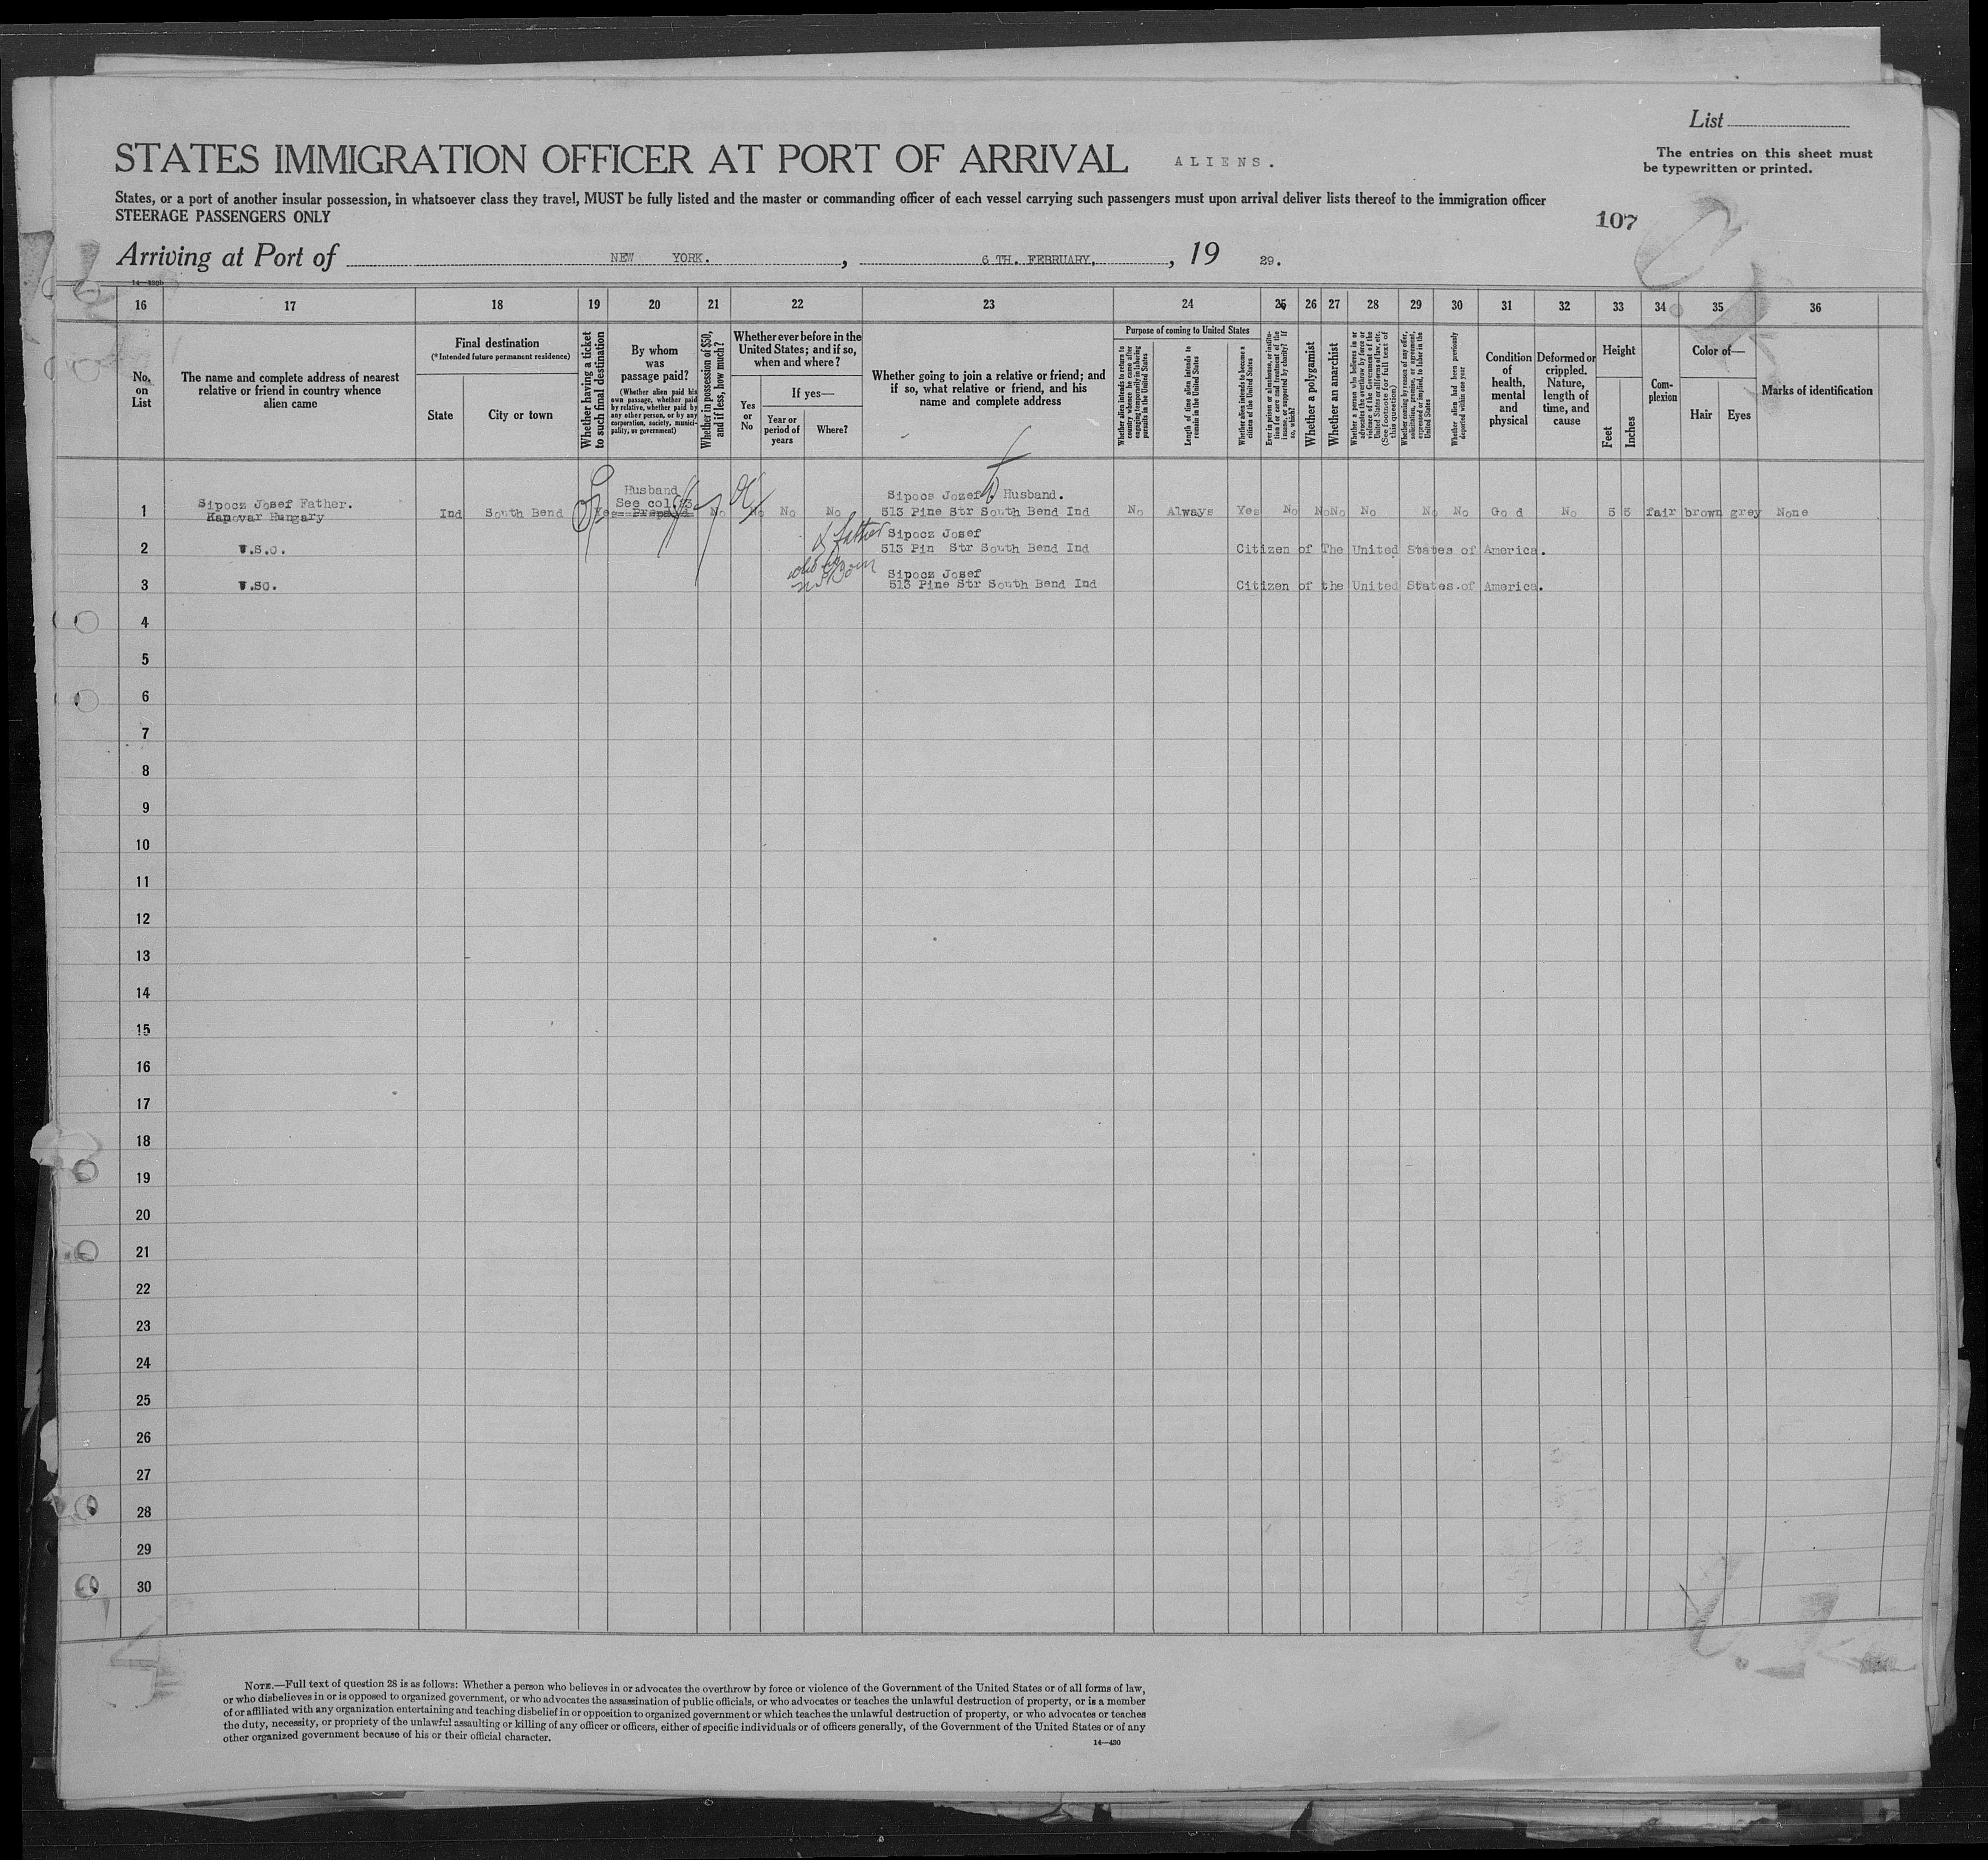 List
STATES IMMIGRATION OFFICER AT PORT OF ARRIVAL ALIENS.
The entries on this sheet must
be typewritten or printed.
States, or a port of another insular possession, in whatsoever class they travel, MUST be fully listed and the master or commanding officer of each vessel carrying such passengers must upon arrival deliver lists thereof to the immigration officer
STEERAGE PASSENGERS ONLY
107
Arriving at Port of NEW YORK. , 6 TH. FEBRUARY. , 19 29.
16 17 18 19 20 21 22 23 24 25 26 27 28 29 30 31 32 33 34 35 36
No.
on
List
The name and complete address of nearest
relative or friend in country whence
alien came
Final destination
(*Intended future permanent residence)
State
City or town
Whether having a ticket
to such final destination
By whom
was
passage paid?
(Whether alien paid his
own passage, whether paid
by relative, whether paid by
any other person, or by any
corporation, society, munici-
pality, or government)
Whether in possession of $50,
and if less, how much?
Whether ever before in the
United States; and if so,
when and where?
Yes
or
No
If yes—
Year or
period of
years
Where?
Whether going to join a relative or friend; and
if so, what relative or friend, and his
name and complete address
Purpose of coming to United States
Whether alien intends to return to
country whence he came after
engaging temporarily in laboring
pursuits in the United States
Length of time alien intends to
remain in the United States
Whether alien intends to become a
citizen of the United States
Ever in prison or almshouse, or institu-
tion for care and treatment of the
insane, or supported by charity? If
so, which?
Whether a polygamist
Whether an anarchist
Whether a person who believes in or
advocates the overthrow by force or
violence of the Government of the
United States or all forms of law, etc.
(See footnote for full text of
this question)
Whether coming by reason of any offer,
solicitation, promise, or agreement,
expressed or implied, to labor in the
United States
Whether alien had been previously
deported within one year
Condition
of
health,
mental
and
physical
Deformed or
crippled.
Nature,
length of
time, and
cause
Height
Feet
Inches
Com-
plexion
Color of—
Hair
Eyes
Marks of identification
Husband
Sipocz Josef Father. See col. 23 Sipocs Jozef Husband.
1 Kapovar Hungary Ind South Bend Yes Prepaid No No No No 513 Pine Str South Bend Ind No Always Yes No No No No No No Go d No 5 5 fair brown grey None
father Sipocz Josef
2 U.S.C. 513 Pin Str South Bend Ind Citizen of The United States of America.
Sipocz Josef
3 U.SC. 513 Pine Str South Bend Ind Citizen of the United States.of America.
4
5
6
7
8
9
10
11
12
13
14
15
16
17
18
19
20
21
22
23
24
25
26
27
28
29
30
NOTE.—Full text of question 28 is as follows: Whether a person who believes in or advocates the overthrow by force or violence of the Government of the United States or of all forms of law,
or who disbelieves in or is opposed to organized government, or who advocates the assassination of public officials, or who advocates or teaches the unlawful destruction of property, or is a member
of or affiliated with any organization entertaining and teaching disbelief in or opposition to organized government or which teaches the unlawful destruction of property, or who advocates or teaches
the duty, necessity, or propriety of the unlawful assaulting or killing of any officer or officers, either of specific individuals or of officers generally, of the Government of the United States or of any
other organized government because of his or their official character.
14—430